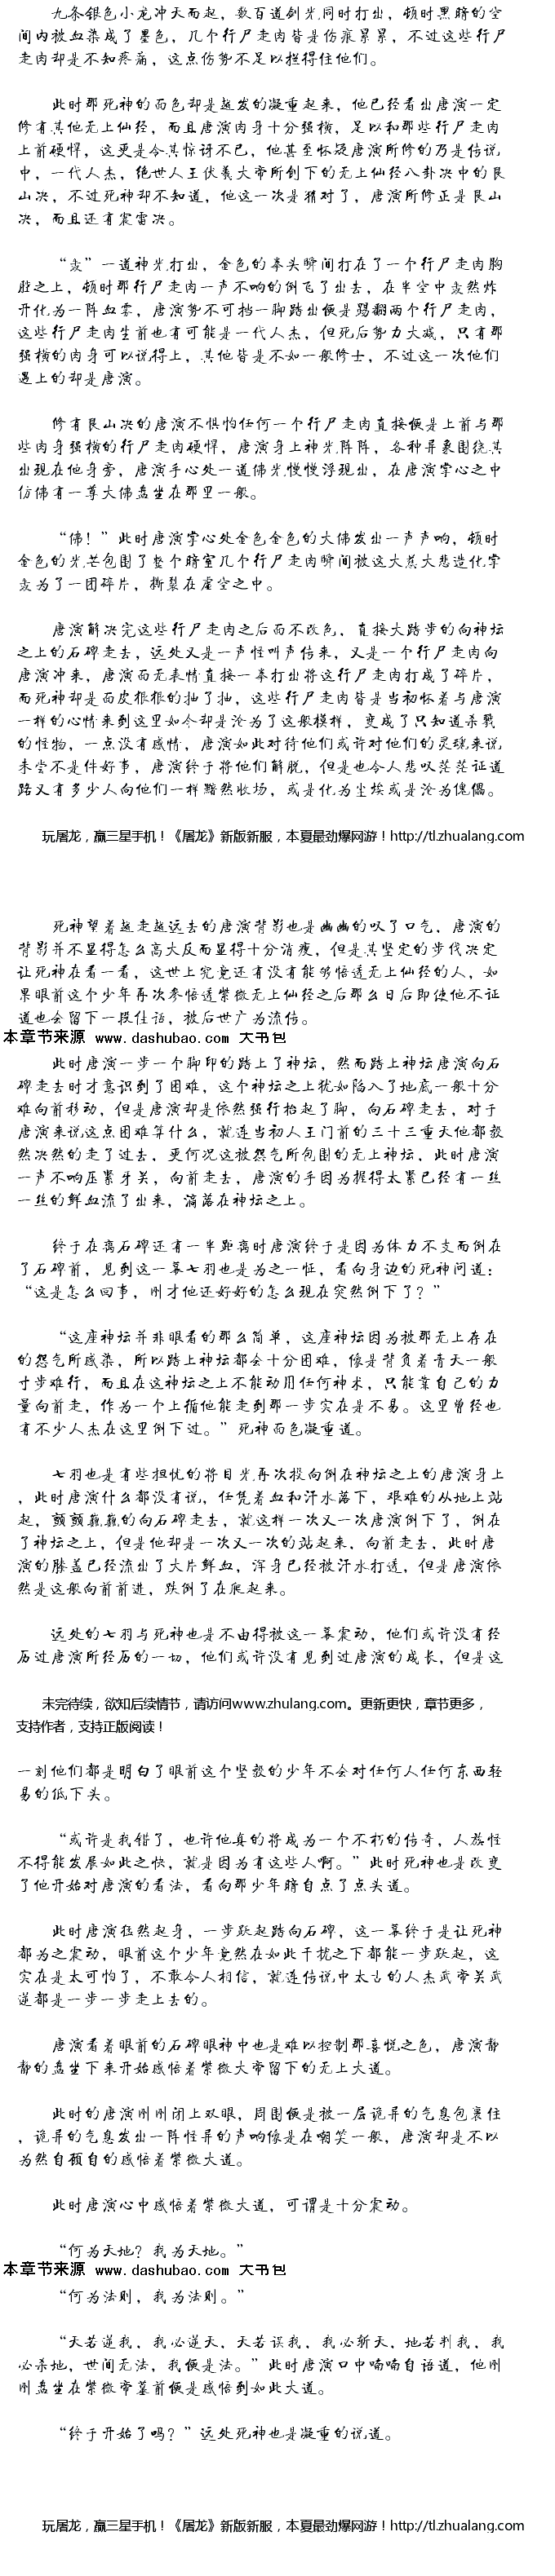 九条银色小龙冲天而起，数百道剑光，同时打出，顿时黑暗的空
间内被血染成了墨色，几个行尸走肉皆是伤痕累累，不过这些行尸
走肉却是不知疼痛，这点伤势不足以拦得住他们。
此时那死神的面色却是越发的凝重起来，他已经看出唐演一定
修有其他无上仙经，而且唐演肉身十分强横，足以和那些行尸走肉
上前硬悍，这更是令其惊讶不已，他甚至怀疑唐演所修的乃是传说
中，一代人杰，绝世人王伏羲大帝所创下的无上仙经八卦决中的艮
山决，不过死神却不知道，他这一次是猜对了，唐演所修正是艮山
决，而且还有震雷决。
“轰”一道神光，打出，金色的拳头瞬间打在了一个行尸走肉胸
膛之上，顿时那行尸走肉一声不响的倒飞了出去，在半空中轰然炸
开化为一阵血雾，唐演势不可挡一脚踏出便是踢翻两个行尸走肉，
这些行尸走肉生前也有可能是一代人杰，但死后势力大减，只有那
强横的肉身可以说得上，其他皆是不如一般修士，不过这一次他们
遇上的却是唐演。
修有艮山决的唐演不惧怕任何一个行尸走肉直接便是上前与那
些肉身强横的行尸走肉硬悍，唐演身上神光，阵阵，各种异象围绕其
出现在他身旁，唐演手心处一道佛光，慢慢浮现出，在唐演掌心之中
仿佛有一尊大佛盘坐在那里一般。
“佛！”此时唐演掌心处金色金色的大佛发出一声声响，顿时
金色的光，芒包围了整个暗室几个行尸走肉瞬间被这大慈大悲造化掌
轰为了一团碎片，撕裂在虚空之中。
唐演解决完这些行尸走肉之后面不改色，直接大踏步的向神坛
之上的石碑走去，远处又是一声怪叫声传来，又是一个行尸走肉向
唐演冲来，唐演面无表情直接一拳打出将这行尸走肉打成了碎片，
而死神却是面皮狠狠的抽了抽，这些行尸走肉皆是当初怀着与唐演
一样的心情来到这里如今却是沦为了这般模样，变成了只知道杀戮
的怪物，一点没有感情，唐演如此对待他们或许对他们的灵魂来说
未尝不是件好事，唐演终于将他们解脱，但是也令人悲叹茫茫证道
路又有多少人向他们一样黯然收场，或是化为尘埃或是沦为傀儡。
玩屠龙，赢三星手机！《屠龙》新版新服，本夏最劲爆网游！http://tl.zhualang.com
死神望着越走越远去的唐演背影也是幽幽的叹了口气，唐演的
背影并不显得怎么高大反而显得十分消瘦，但是其坚定的步伐决定
让死神在看一看，这世上究竟还有没有能够悟透无上仙经的人，如
果眼前这个少年再次参悟透紫微无上仙经之后那么日后即使他不证
道也会留下一段佳话，被后世广为流传。
本章节来源 www.dashubao.com 大书包
此时唐演一步一个脚印的踏上了神坛，然而踏上神坛唐演向石
碑走去时才意识到了困难，这个神坛之上犹如陷入了地底一般十分
难向前移动，但是唐演却是依然强行抬起了脚，向石碑走去，对于
唐演来说这点困难算什么，就连当初人王门前的三十三重天他都毅
然决然的走了过去，更何况这被怨气所包围的无上神坛，此时唐演
一声不响压紧牙关，向前走去，唐演的手因为握得太紧已经有一丝
一丝的鲜血流了出来，滴落在神坛之上。
终于在离石碑还有一半距离时唐演终于是因为体力不支而倒在
了石碑前，见到这一幕七羽也是为之一怔，看向身边的死神问道：
“这是怎么回事，刚才他还好好的怎么现在突然倒下了？”
“这座神坛并非眼看的那么简单，这座神坛因为被那无上存在
的怨气所感染，所以踏上神坛都会十分困难，像是背负着青天一般
寸步难行，而且在这神坛之上不能动用任何神术，只能靠自己的力
量向前走，作为一个上循他能走到那一步实在是不易。这里曾经也
有不少人杰在这里倒下过。”死神面色凝重道。
七羽也是有些担忧的将目光，再次投向倒在神坛之上的唐演身上
，此时唐演什么都没有说，任凭着血和汗水落下，艰难的从地上站
起，颤颤巍巍的向石碑走去，就这样一次又一次唐演倒下了，倒在
了神坛之上，但是他却是一次又一次的站起来，向前走去，此时唐
演的膝盖已经流出了大片鲜血，浑身已经被汗水打透，但是唐演依
然是这般向前前进，跌倒了在爬起来。
远处的七羽与死神也是不由得被这一幕震动，他们或许没有经
历过唐演所经历的一切，他们或许没有见到过唐演的成长，但是这
未完待续，欲知后续情节，请访问www.zhulang.com。更新更快，章节更多，
支持作者，支持正版阅读！
一刻他们都是明白了眼前这个坚毅的少年不会对任何人任何东西轻
易的低下头。
“或许是我错了，也许他真的将成为一个不朽的传奇，人族怪
不得能发展如此之快，就是因为有这些人啊。”此时死神也是改变
了他开始对唐演的看法，看向那少年暗自点了点头道。
此时唐演猛然起身，一步跃起踏向石碑，这一幕终于是让死神
都为之震动，眼前这个少年竟然在如此干扰之下都能一步跃起，这
实在是太可怕了，不敢令人相信，就连传说中太古的人杰武帝关武
逆都是一步一步走上去的。
唐演看着眼前的石碑眼神中也是难以控制那喜悦之色，唐演静
静的盘坐下来开始感悟着紫微大帝留下的无上大道。
此时的唐演刚刚闭上双眼，周围便是被一层诡异的气息包裹住
，诡异的气息发出一阵怪异的声响像是在嘲笑一般，唐演却是不以
为然自顾自的感悟着紫微大道。
此时唐演心中感悟着紫微大道，可谓是十分震动。
“何为天地？我为天地。”
本章节来源 www.dashubao.com 大书包
“何为法则，我为法则。”
“天若逆我，我必逆天，天若误我，我必斩天，地若判我，我
必杀地，世间无法，我便是法。”此时唐演口中喃喃自语道，他刚
刚盘坐在紫微帝墓前便是感悟到如此大道。
“终于开始了吗？”远处死神也是凝重的说道。
玩屠龙，赢三星手机！《屠龙》新版新服，本夏最劲爆网游！http://tl.zhualang.com